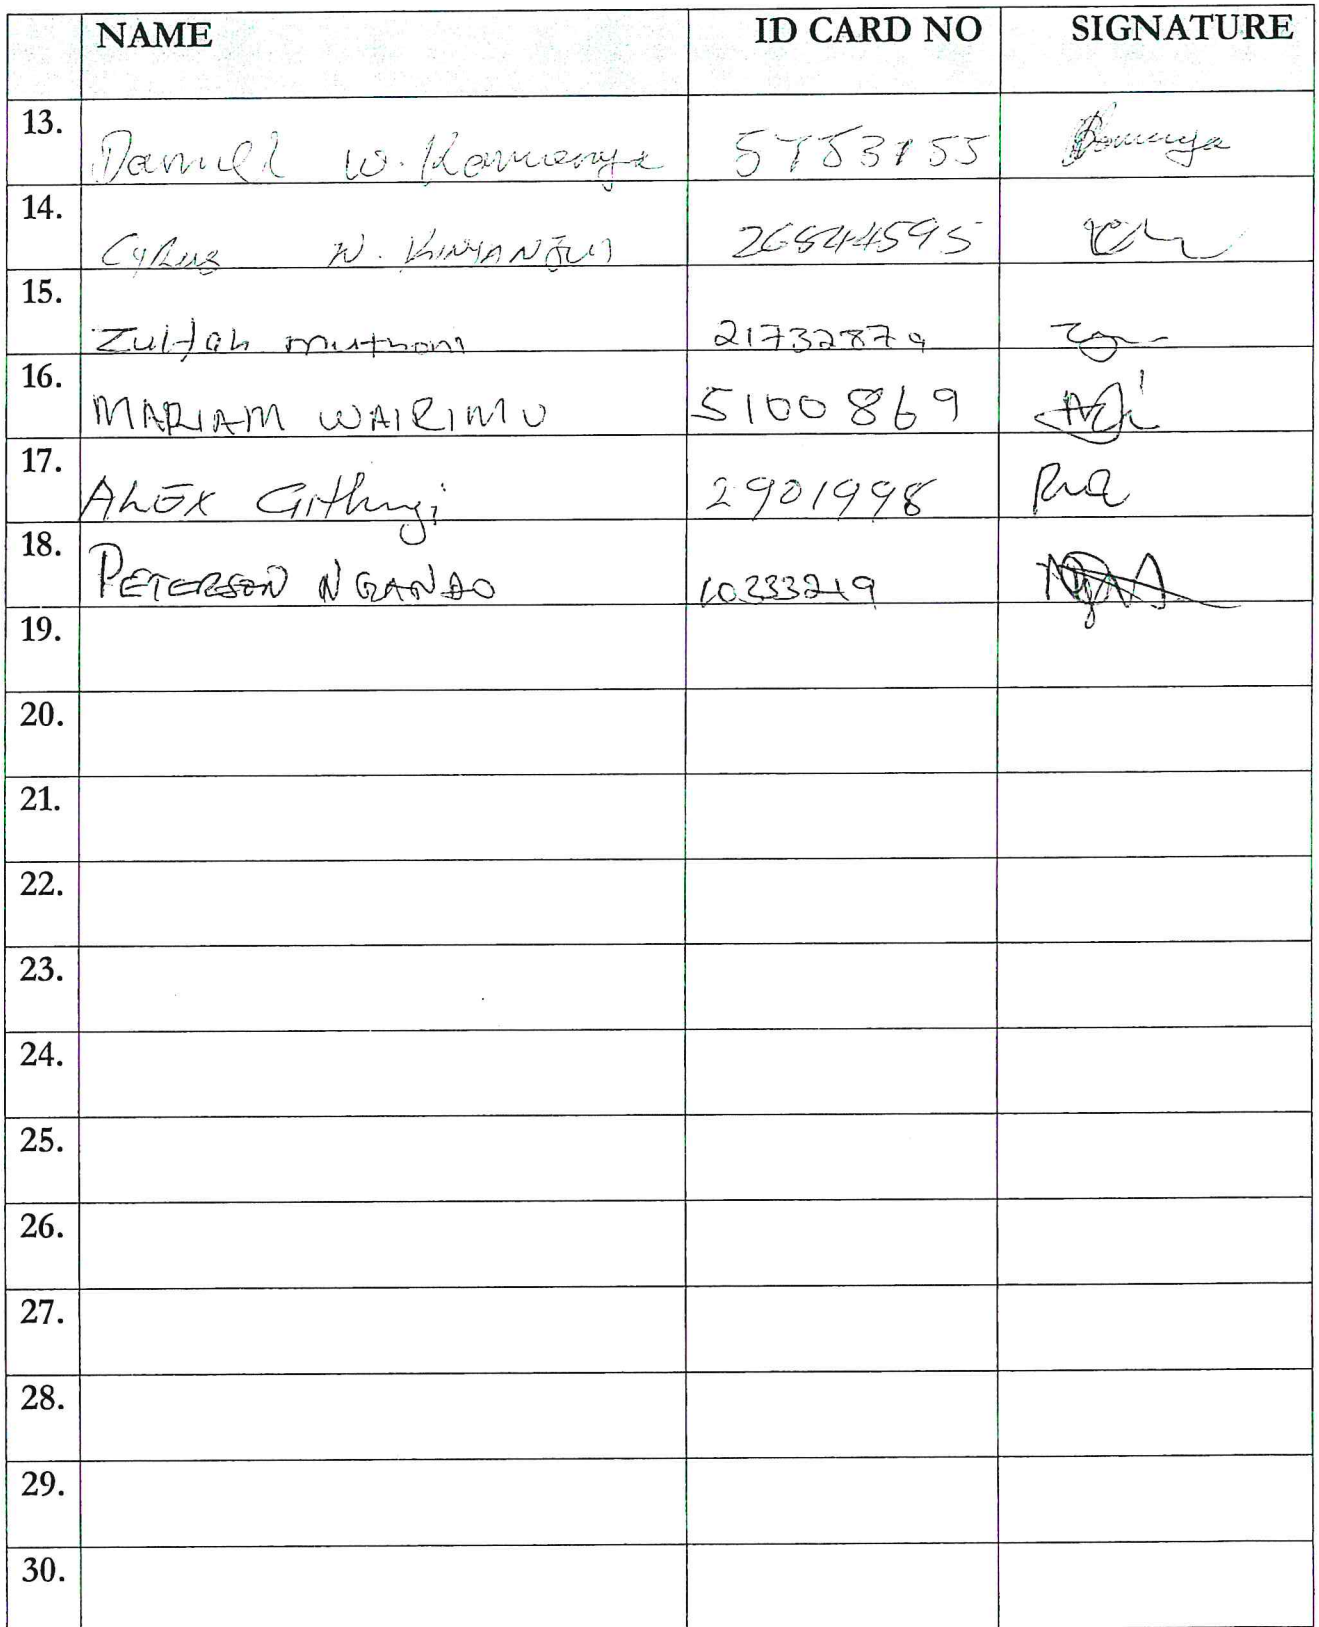 NAME ID CARD NO SIGNATURE
13. Daniel W. Kamenya
14. Cyrus N. KINYANJUI 26544595
15. Zulfah muthoni 21732879
16. MARIAM WAIRIMU 5100869
17. ALEX Githugi 2901998
18. PETERSON NGANDO 10233219
19.
20.
21.
22.
23.
24.
25.
26.
27.
28.
29.
30.